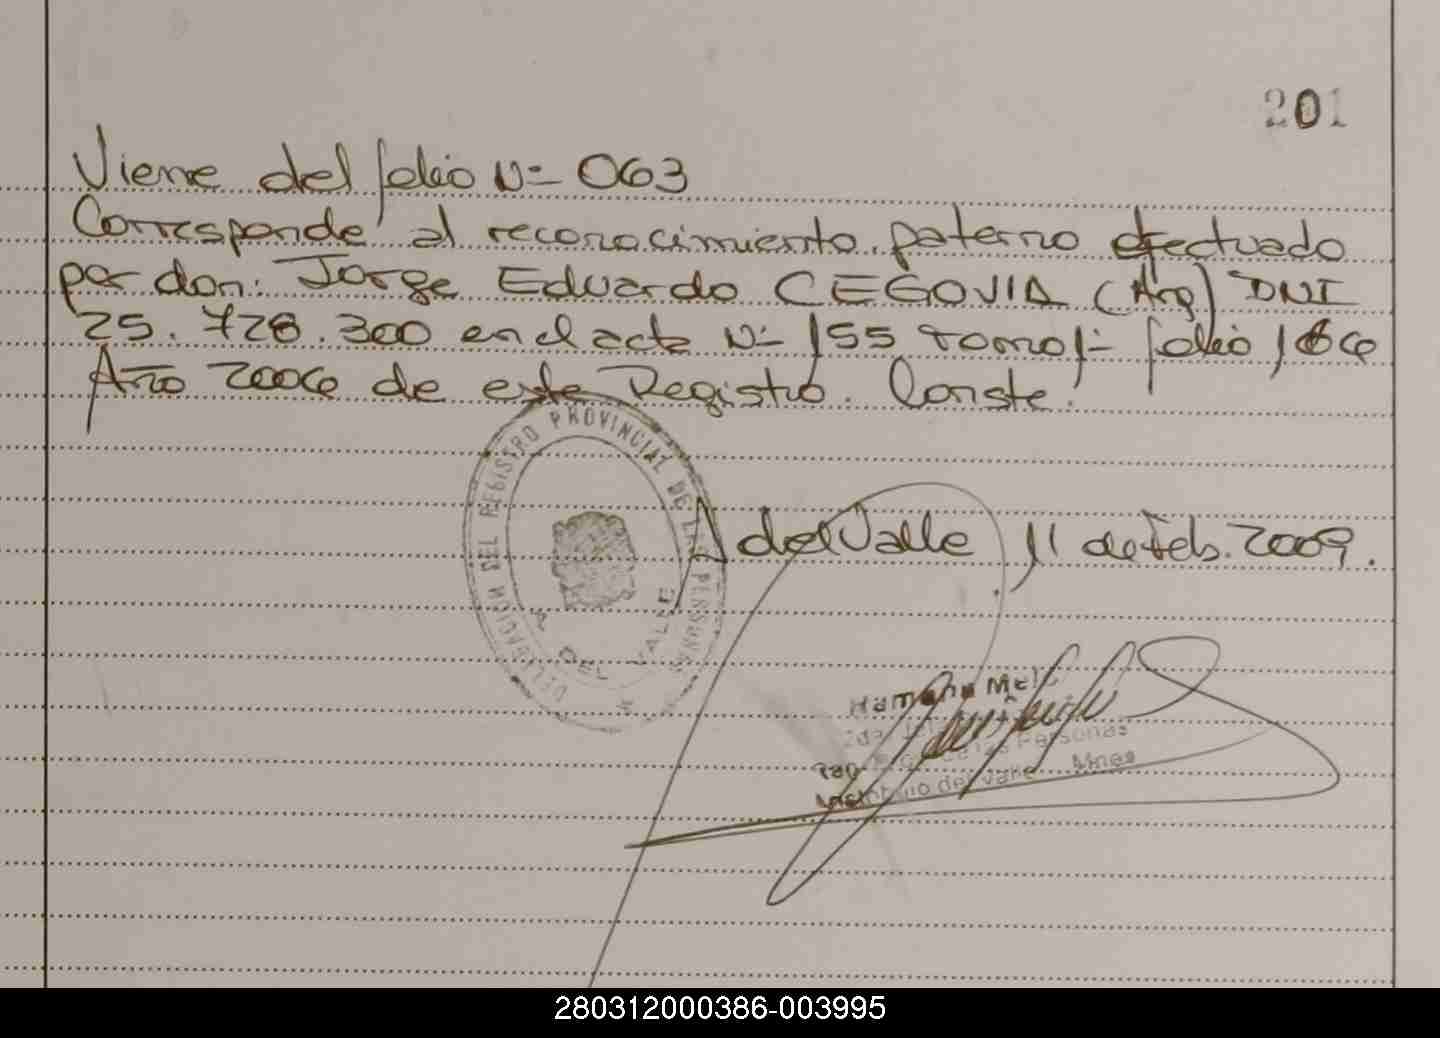 201
Viene del folio Nº 063
Corresponde al reconocimiento paterno efectuado
por don: Jorge Eduardo CEGOVIA (Arg) DNI
25.728.300 en el acta Nº 155 tomo 1º folio 166
Año 2006 de este Registro. Conste.
DELEGACION DEL REGISTRO PROVINCIAL DE LAS PERSONAS
A. DEL VALLE
A del Valle, 11 de Feb. 2009.
de las Personas
del Valle Mnes
280312000386-003995